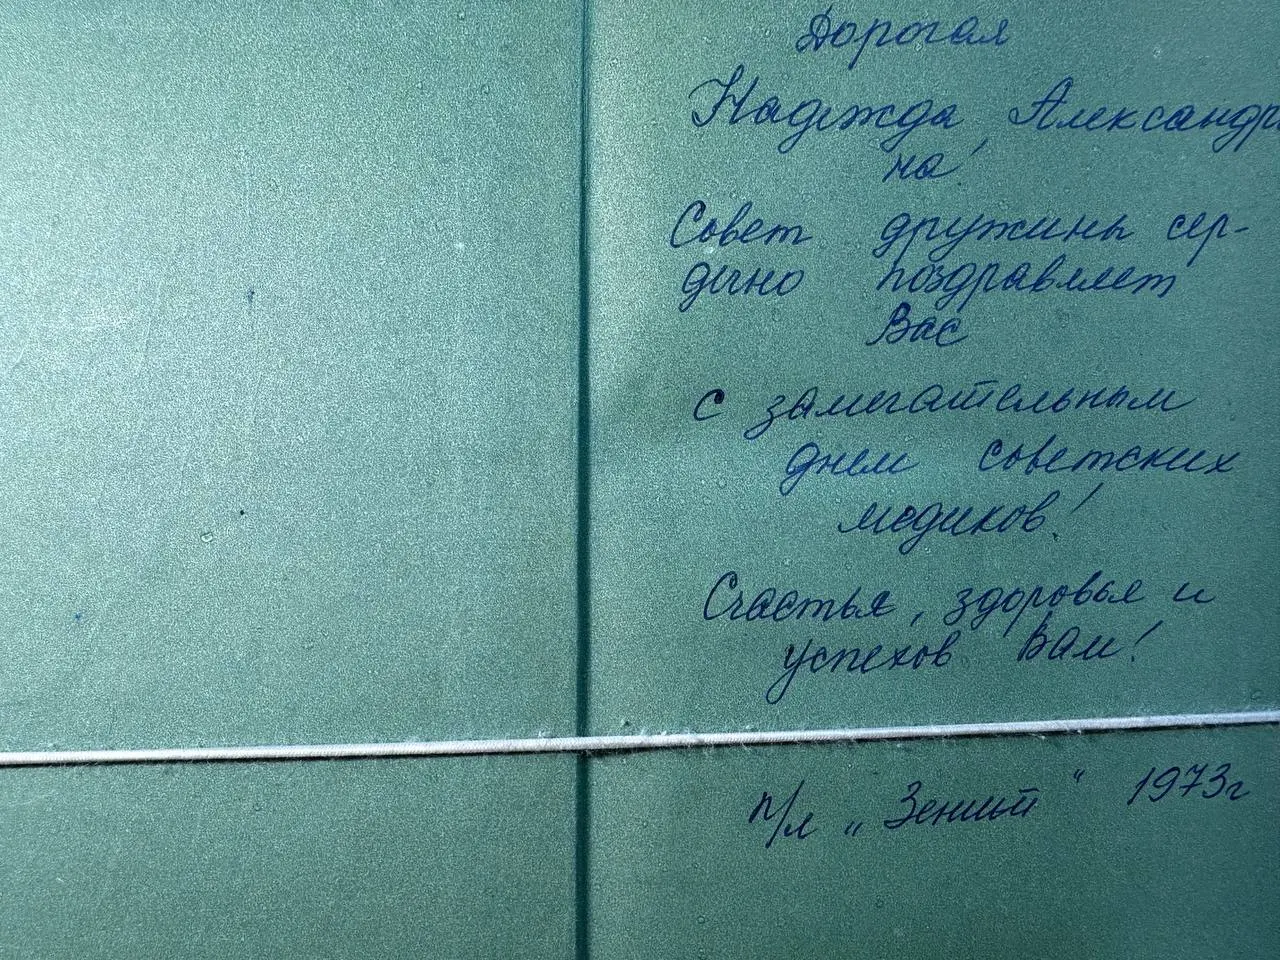 Дорогая
Надежда Александров
на!
Совет дружины сер-
дечно поздравляет
Вас
с замечательным
днем советских
медиков!
Счастья, здоровья и
успехов Вам!
п/л „Зенит" 1973г